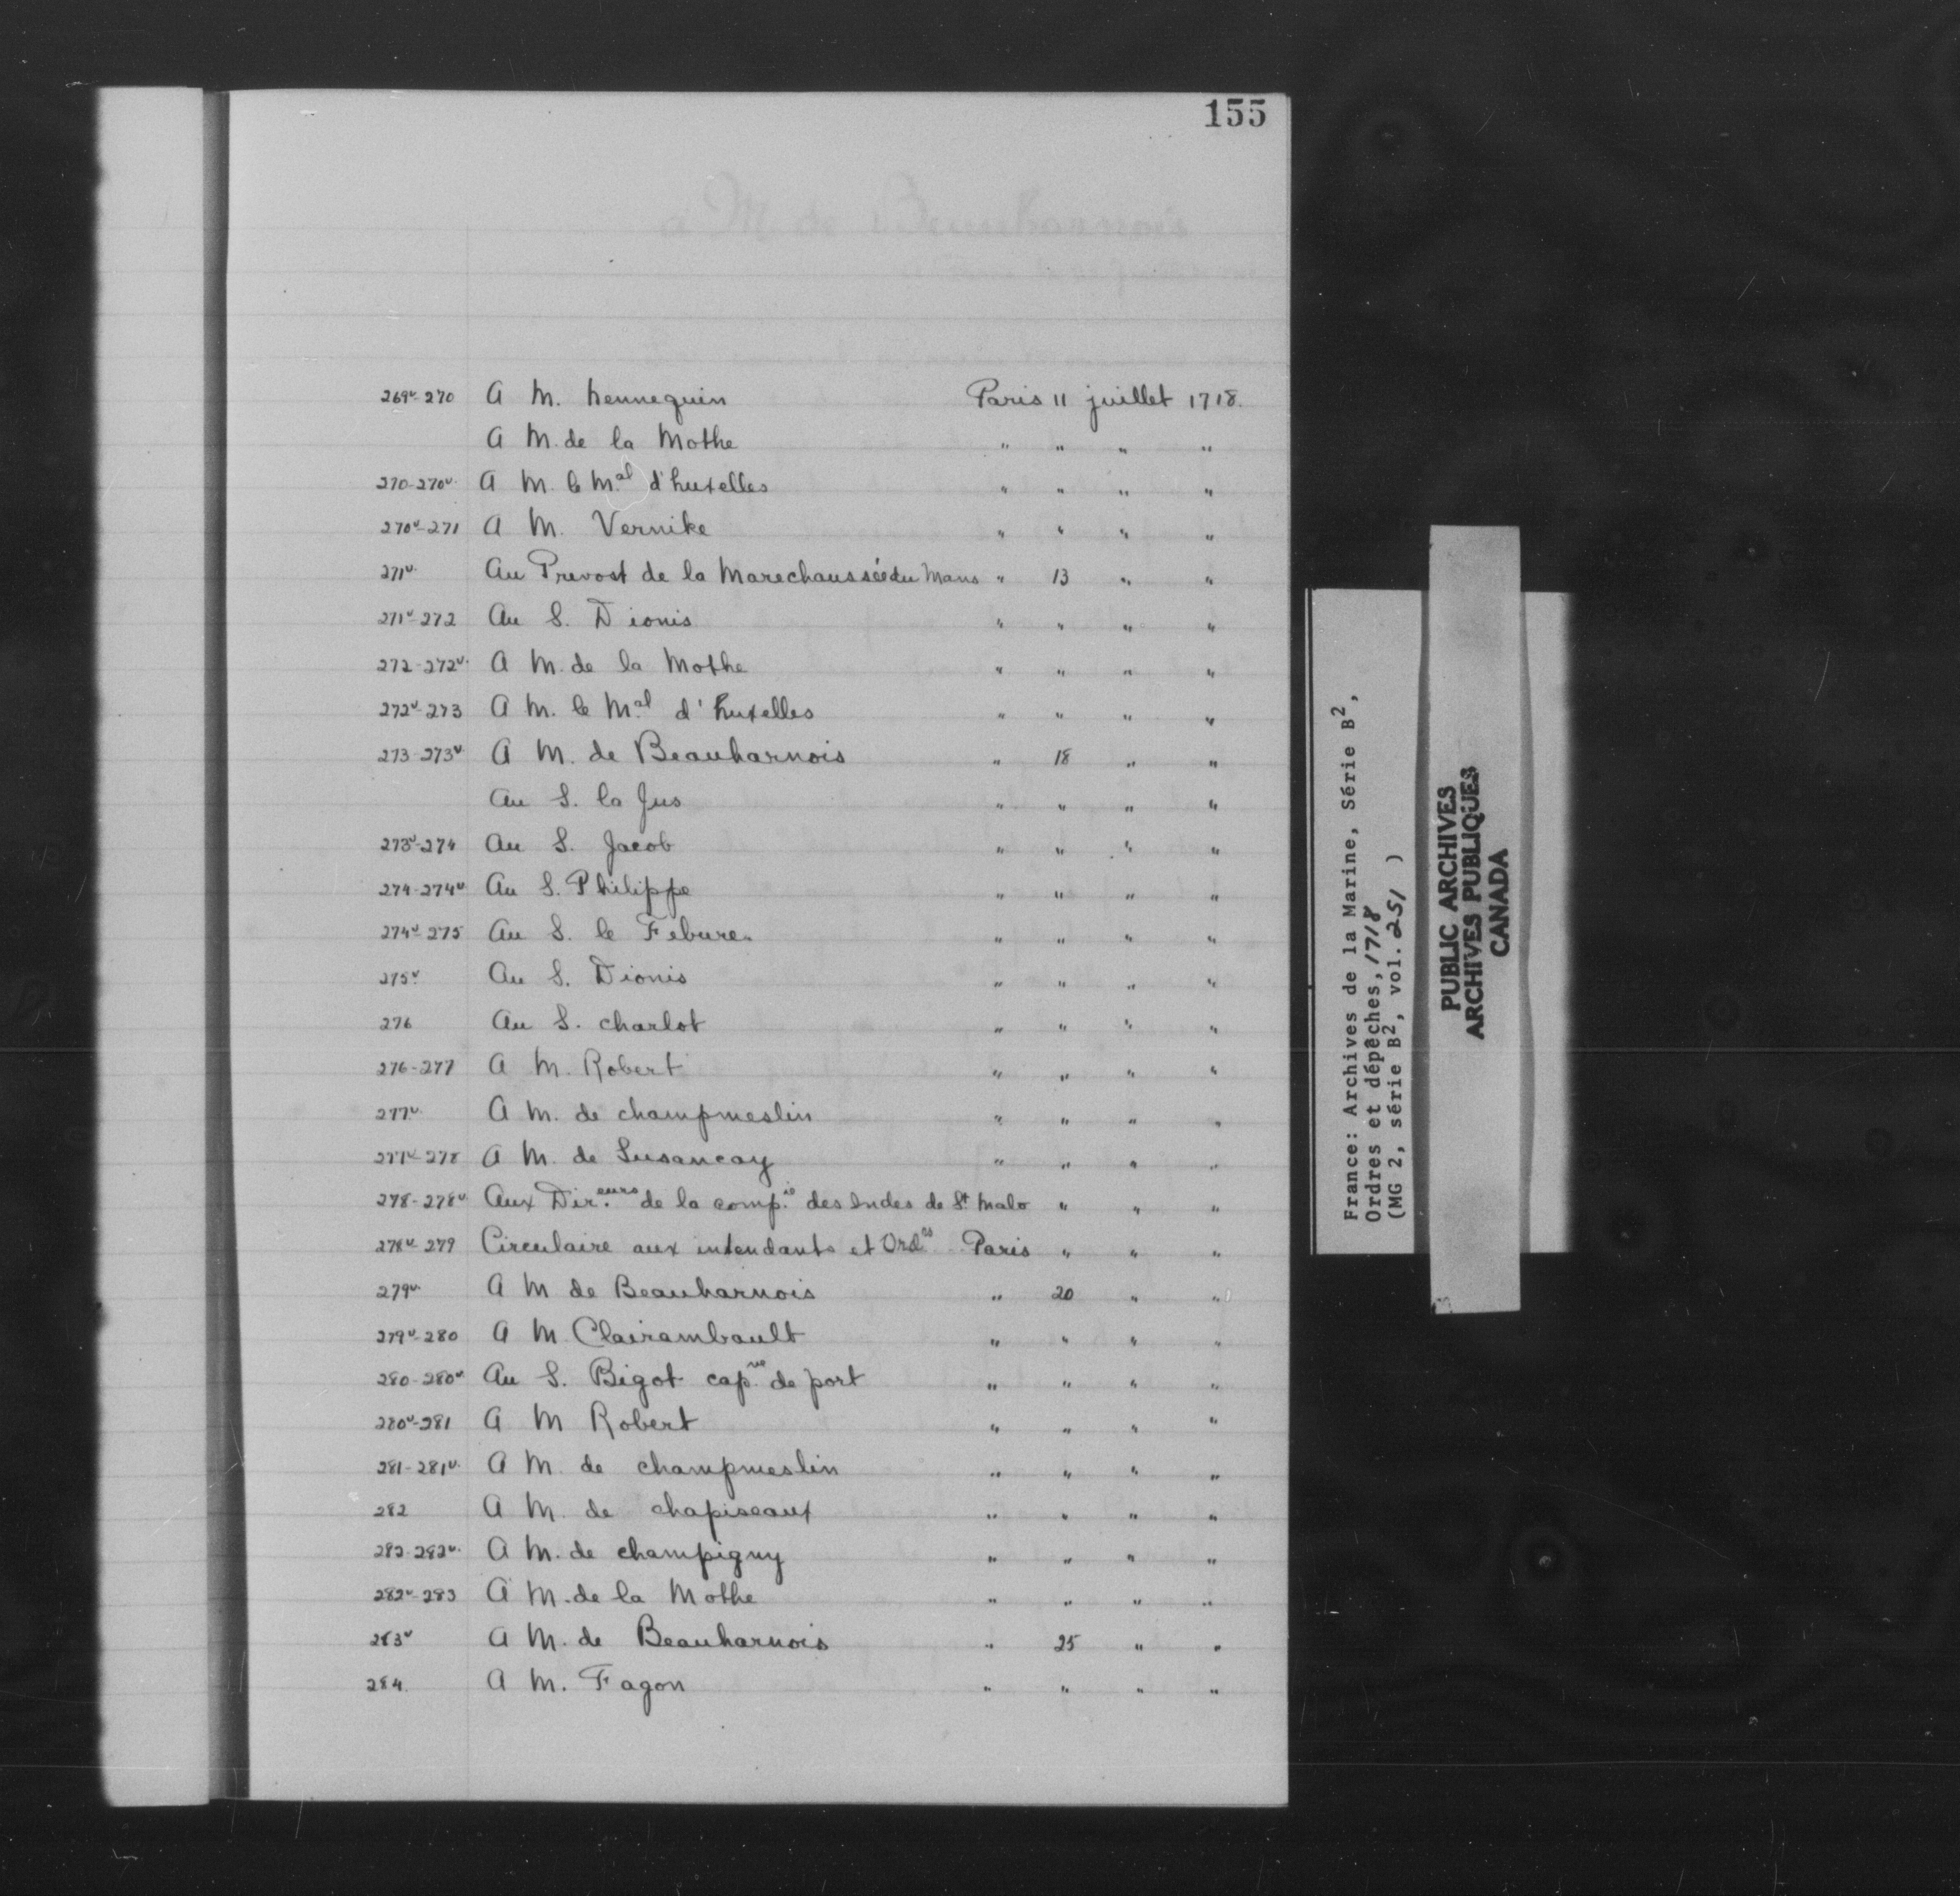 155
269v-270 A M. hennequin Paris 11 juillet 1718.
A M. de la Mothe " " " "
270-270v. A M. le Mal d'huxelles " " " "
270v-271 A M. Vernike " " " "
271v. Au Prevost de la Marechaussée du Mans " 13 " "
271v-272 Au S. Dionis " " " "
272-272v. A M. de la Mothe " " " "
272v-273 A M. le Mal d'huxelles " " " "
273-273v A M. de Beauharnois " 18 " "
Au S. la Jus " " " "
273v-274 Au S. Jacob " " " "
274-274v Au S. Philippe " " " "
274v-275 Au S. le Febure. " " " "
275v. Au S. Dionis " " " "
276 Au S. charlot " " " "
276-277 A M. Robert " " " "
277v. A M. de champmeslin " " " "
277v-278 A M. de Lusancay " " " "
278-278v. Aux Dir.eurs de la comp.ie des Indes de St Malo " " "
278v-279 Circulaire aux intendants et Ordrs Paris " " "
279v. A M de Beauharnois " 20 " "
279v-280 A M. Clairambault " " " "
280-280v. Au S. Bigot cap.ne de port " " " "
280v-281 A M Robert " " " "
281-281v. A M. de champmeslin " " " "
282 A M. de chapiseaux " " " "
282-282v. A M. de champigny " " " "
282v-283 A M. de la Mothe " " " "
283v A M. de Beauharnois " 25 " "
284. A M. Fagon " " " "
France: Archives de la Marine, Série B2,
Ordres et dépêches, 1718
(MG 2, série B2, vol. 251 )
PUBLIC ARCHIVES
ARCHIVES PUBLIQUES
CANADA